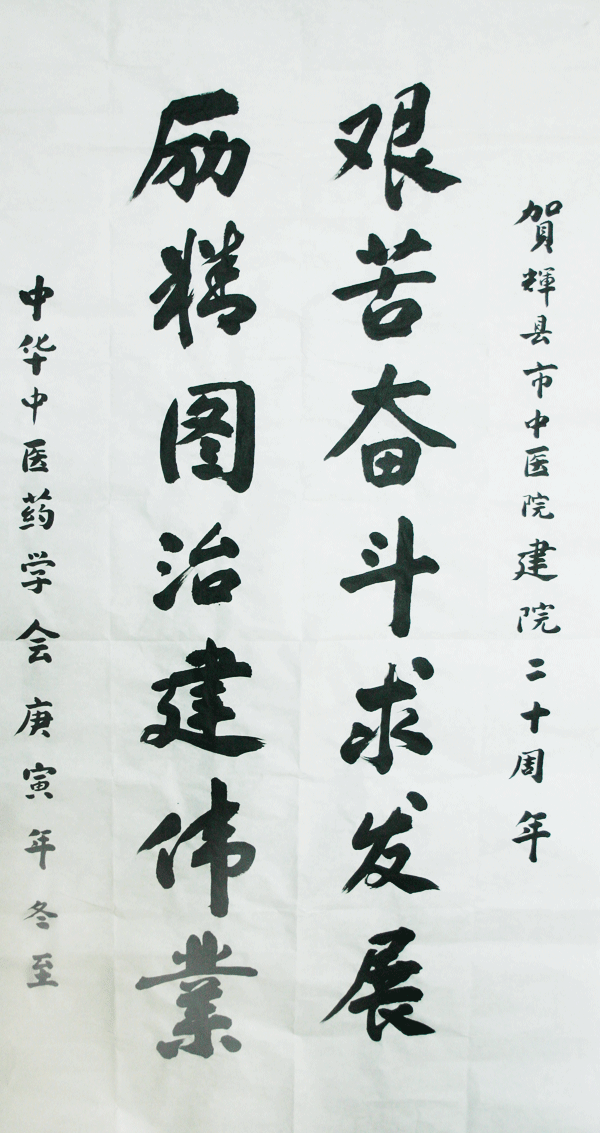 賀輝县市中医院建院二十周年
艰苦奋斗求发展
励精图治建伟業
中华中医药学会庚寅年冬至